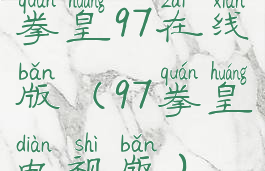 quán huáng zài xiàn
拳皇97在线
bǎn quán huáng
版（97拳皇
diàn shì bǎn
电视版）